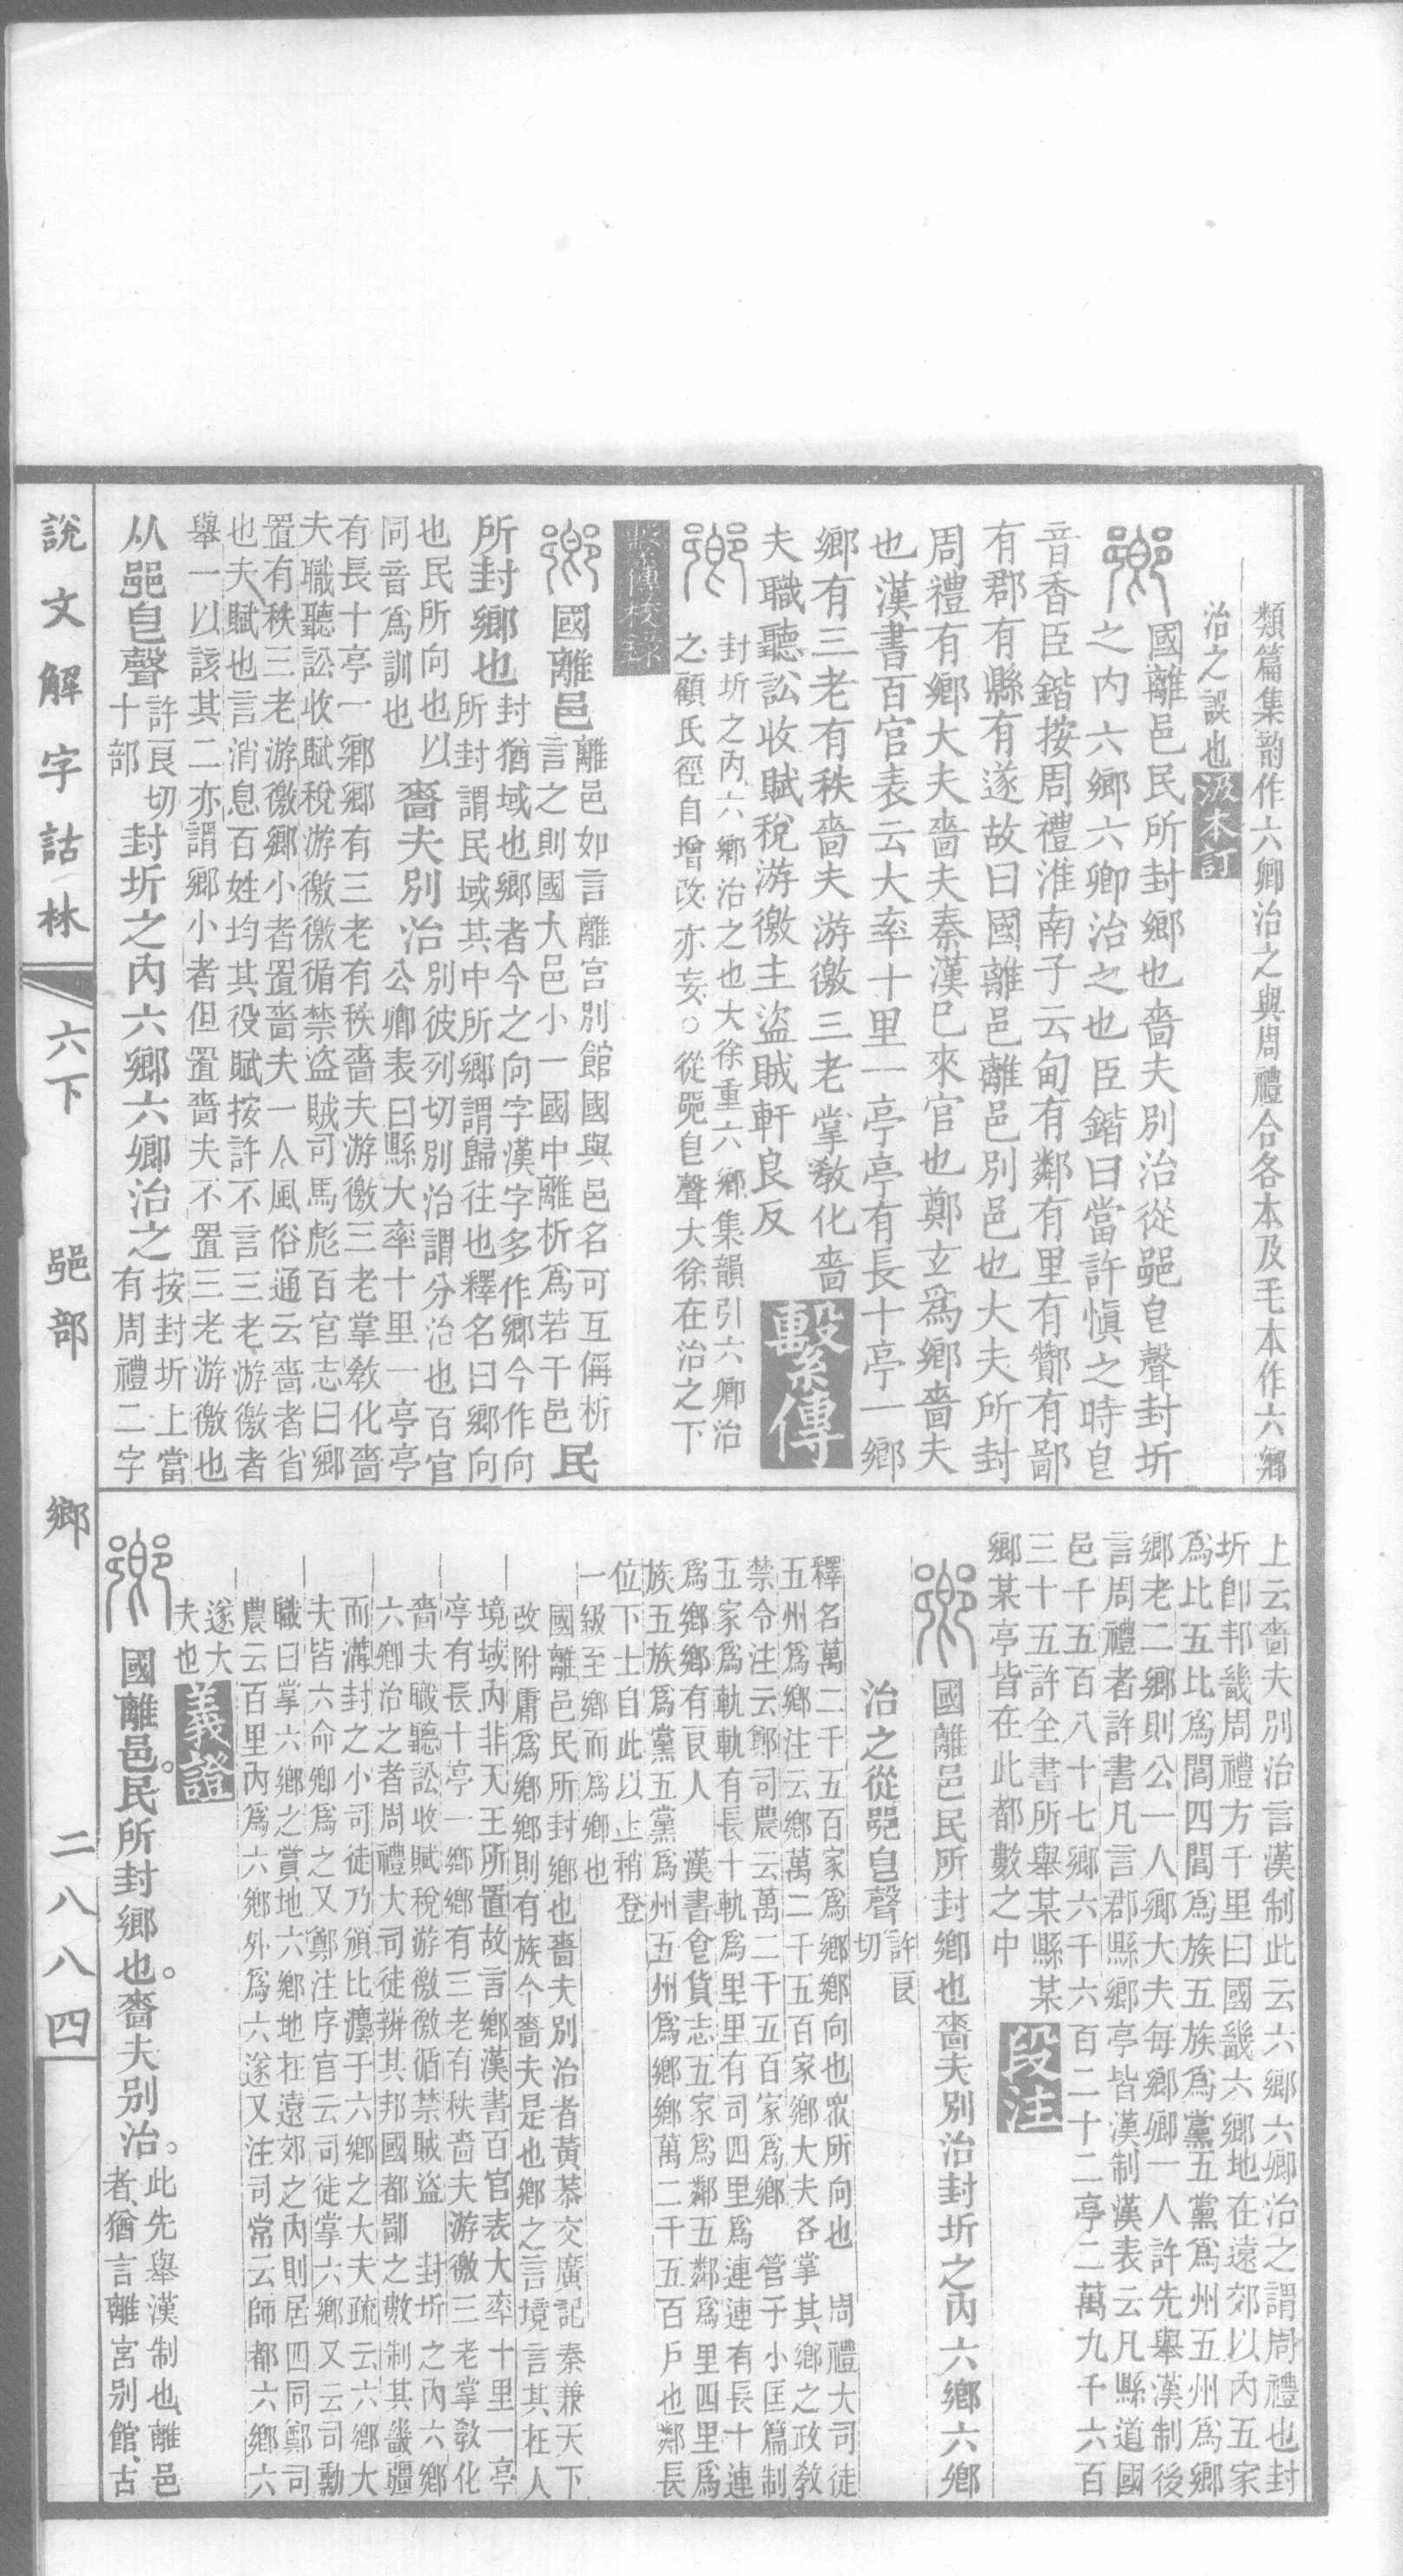 類篇集韵作六卿治之與周禮合各本及毛本作六鄉
治之誤也汲本訂
國離邑民所封鄉也嗇夫別治從𨛜皀聲封圻
之内六鄉六卿治之也臣鍇曰當許愼之時皀
音香臣鍇按周禮淮南子云甸有鄰有里有酇有鄙
有郡有縣有遂故曰國離邑離邑別邑也大夫所封
周禮有鄉大夫嗇夫秦漢已來官也鄭玄爲鄉嗇夫
也漢書百官表云大率十里一亭亭有長十亭一鄉
鄉有三老有秩嗇夫游徼三老掌敎化嗇
夫職聽訟收賦稅游徼主盜賊軒良反
繫傳
封圻之内六鄉治之也大徐重六鄉集韻引六卿治
之顧氏徑自增改亦妄○從𨛜皀聲大徐在治之下
繫傳校錄
國離邑
離邑如言離宮別館國與邑名可互偁析
言之則國大邑小一國中離析爲若干邑
民
所封鄉也
封猶域也鄉者今之向字漢字多作鄉今作向
所封謂民域其中所鄉謂歸往也釋名曰鄉向
也民所向也以
同音爲訓也
嗇夫別治
別彼列切別治謂分治也百官
公卿表曰縣大率十里一亭亭
有長十亭一鄉鄉有三老有秩嗇夫游徼三老掌敎化嗇
夫職聽訟收賦稅游徼徼循禁盜賊司馬彪百官志曰鄉
置有秩三老游徼鄉小者置嗇夫一人風俗通云嗇者省
也夫賦也言消息百姓均其役賦按許不言三老游徼者
舉一以該其二亦謂鄉小者但置嗇夫不置三老游徼也
从𨛜皀聲
許良切
十部
封圻之内六鄉六卿治之
按封圻上當
有周禮二字
說文解字詁林 六下 𨛜部 鄉 二八八四
上云嗇夫別治言漢制此云六鄉六卿治之謂周禮也封
圻卽邦畿周禮方千里曰國畿六鄉地在遠郊以内五家
爲比五比爲閭四閭爲族五族爲黨五黨爲州五州爲鄉
鄉老二鄉則公一人鄉大夫每鄉卿一人許先舉漢制後
言周禮者許書凡言郡縣鄉亭皆漢制漢表云凡縣道國
邑千五百八十七鄉六千六百二十二亭二萬九千六百
三十五許全書所舉某縣某
鄉某亭皆在此都數之中
段注
國離邑民所封鄉也嗇夫別治封圻之内六鄉六鄉
治之從𨛜皀聲
許良
切
釋名萬二千五百家爲鄉鄉向也眾所向也 周禮大司徒
五州爲鄉注云鄉萬二千五百家鄉大夫各掌其鄉之政敎
禁令注云鄭司農云萬二千五百家爲鄉 管子小匡篇制
五家爲軌軌有長十軌爲里里有司四里爲連連有長十連
爲鄉鄉有良人 漢書食貨志五家爲鄰五鄰爲里四里爲
族五族爲黨五黨爲州五州爲鄉鄉萬二千五百戶也鄰長
位下士自此以上稍登
一級至鄉而爲鄉也
國離邑民所封鄉也嗇夫別治者黃恭交廣記秦兼天下
改附庸爲鄉鄉則有族今嗇夫是也鄉之言境言其在人
境域内非天王所置故言鄉漢書百官表大率十里一亭
亭有長十亭一鄉鄉有三老有秩嗇夫游徼三老掌敎化
嗇夫職聽訟收賦稅游徼徼循禁賊盜 封圻之内六鄉
六卿治之者周禮大司徒辨其邦國都鄙之數制其畿疆
而溝封之小司徒乃頒比灋于六鄉之大夫疏云六鄉大
夫皆六命卿爲之又鄭注序官云司徒掌六鄉又云司勳
職曰掌六鄉之賞地六鄉地在遠郊之内則居四同鄭司
農云百里内爲六鄉外爲六遂又注司常云師都六鄉六
遂大
夫也
義證
國離邑。民所封鄉也。嗇夫別治。
此先舉漢制也、離邑
者、猶言離宮別館、古